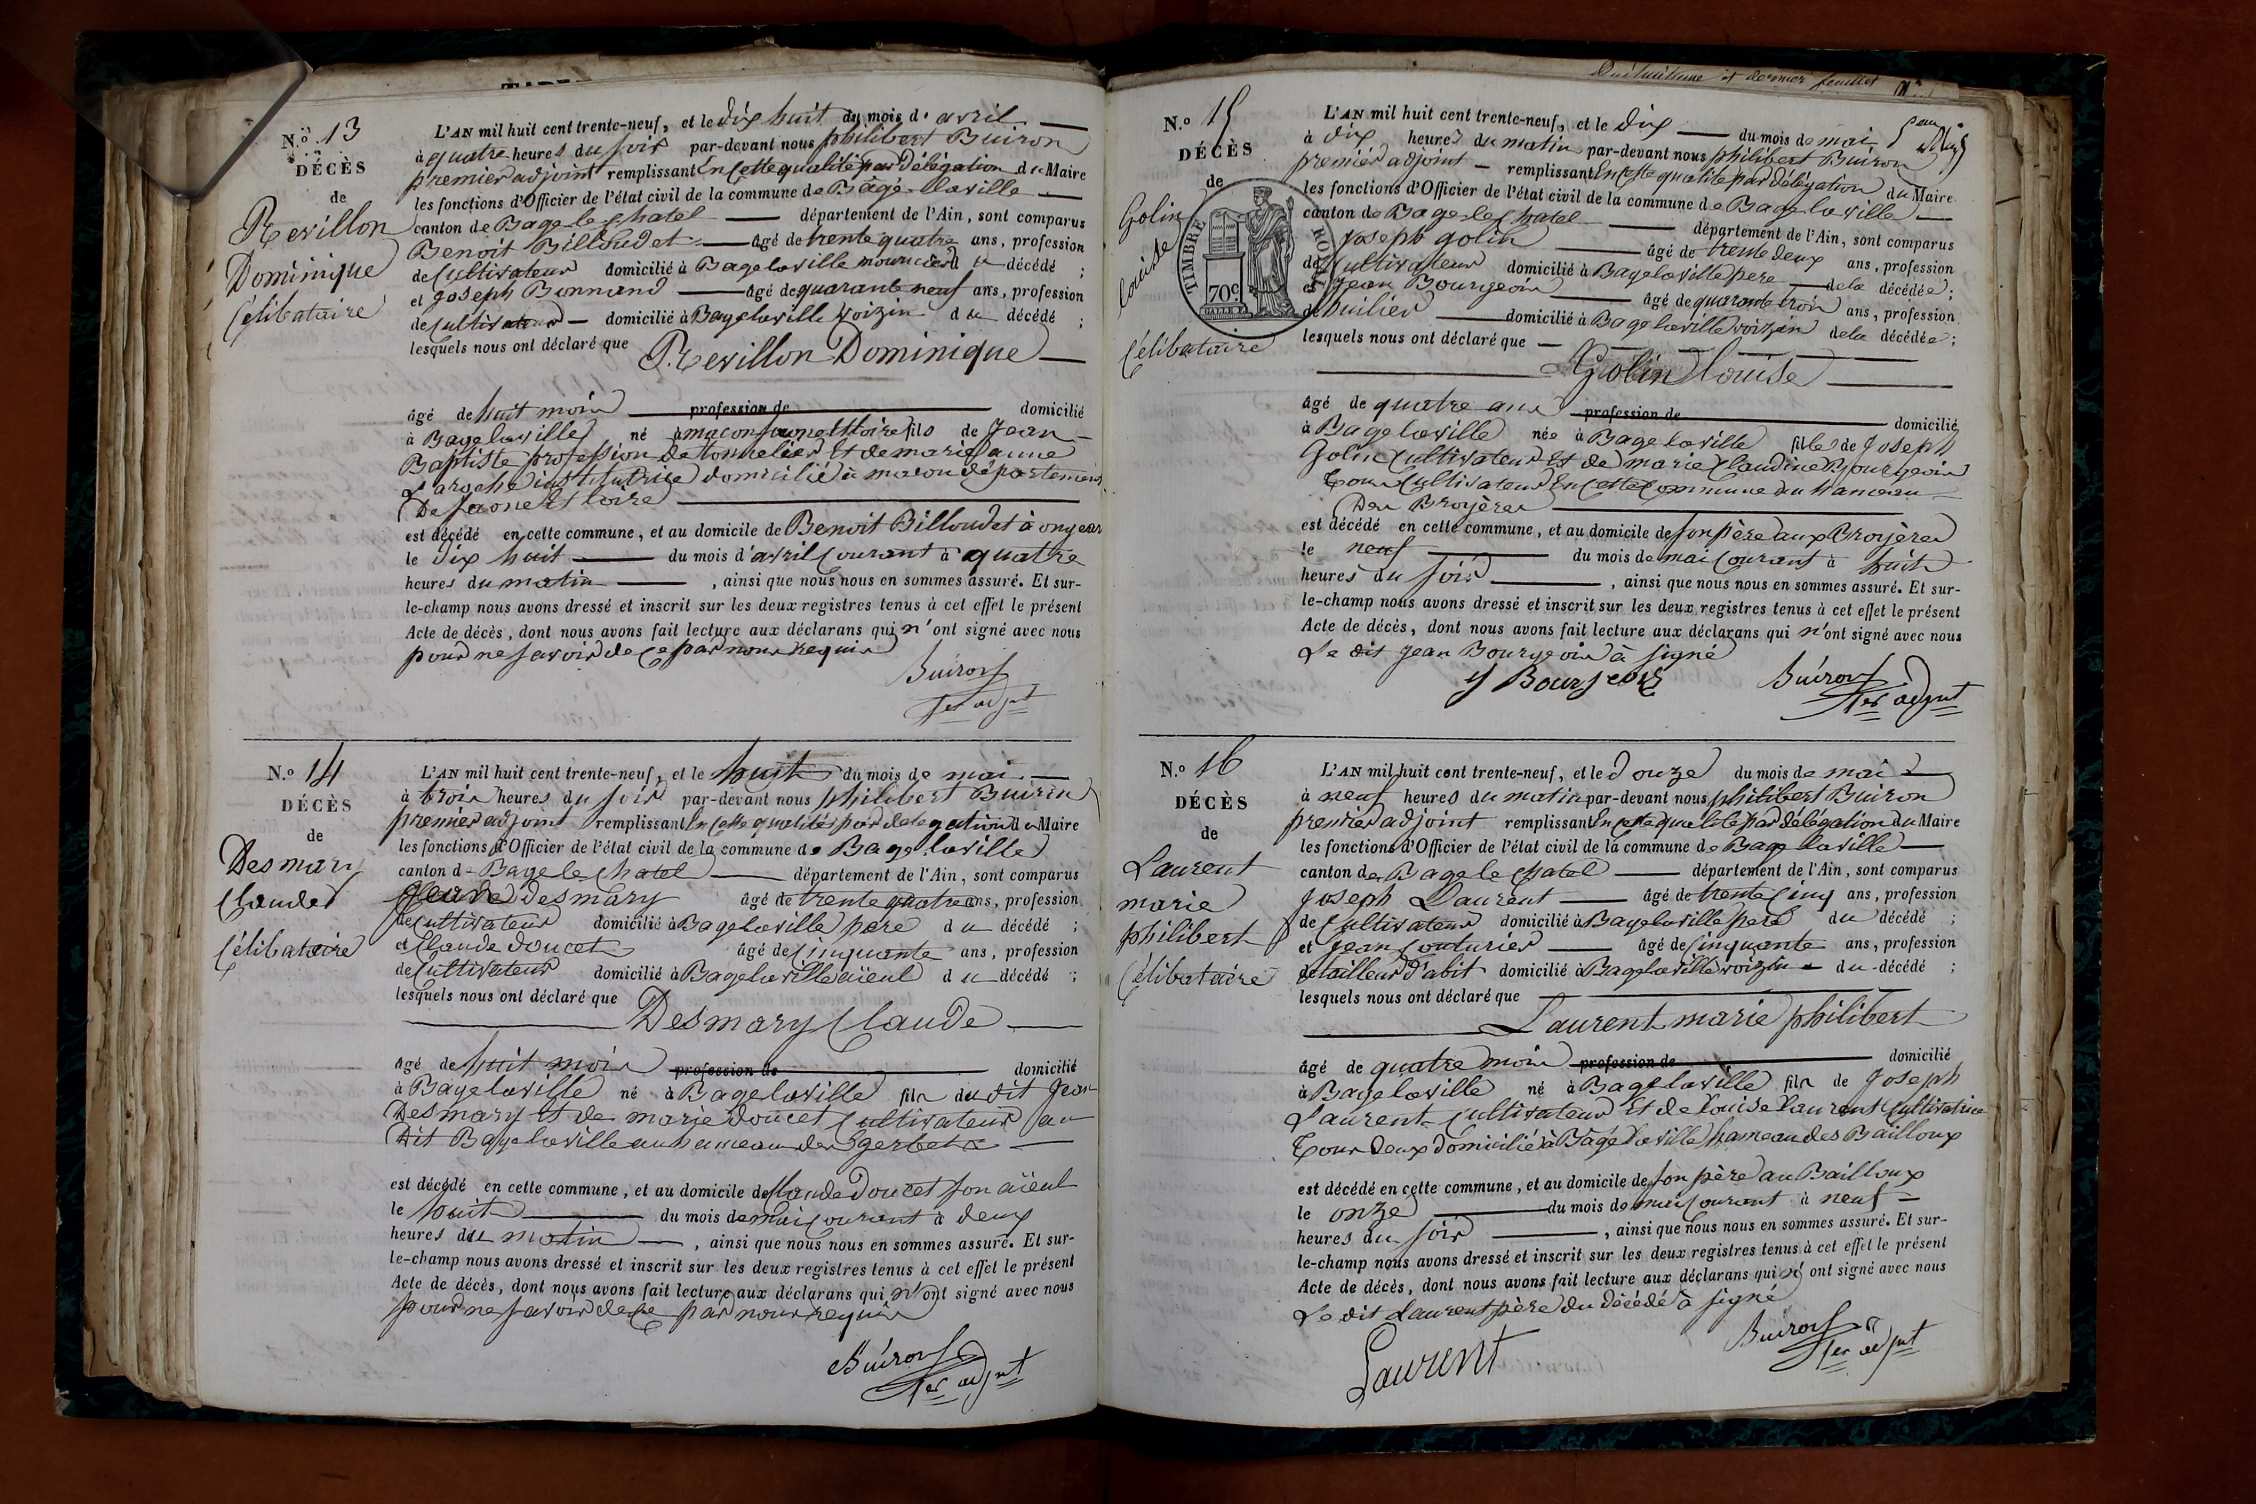 N.º 13
DÉCÈS
de
Revillon
Dominique
Célibataire
L'AN mil huit cent trente-neuf, et le dix huit du mois d'avril
à quatre heures du soir par-devant nous philibert Buiron
premier adjoint remplissant En cette qualité par Délégation du Maire
les fonctions d'Officier de l'état civil de la commune de Bagé laville
canton de Bage le chatel département de l'Ain, sont comparus
Benoit Billoudet âgé de trente quatre ans, profession
de Cultivateur domicilié à Bagelaville du décédé ;
et joseph Bonnand âgé de quarante neuf ans, profession
de Cultivateur domicilié à Bagelaville voizin du décédé ;
lesquels nous ont déclaré que Revillon Dominique
âgé de huit mois profession de domicilié
à Bagelaville né à macon saone et loire fils de Jean
Baptiste profession de tonnelier Et de marie jeanne
Laroche institutrice domicilié à macon département
De saone Et loire
est décédé en cette commune, et au domicile de Benoit Billoudet à
le dix huit du mois d'avril courant à quatre
heures du matin , ainsi que nous nous en sommes assuré. Et sur-
le-champ nous avons dressé et inscrit sur les deux registres tenus à cet effet le présent
Acte de décès, dont nous avons fait lecture aux déclarans qui n'ont signé avec nous
pour ne savoir de ce par nous requis
Buiron
1er adjnt
N.º 14
DÉCÈS
de
Desmary
Claude
Célibataire
L'AN mil huit cent trente-neuf, et le huit du mois de mai
à trois heures du soir par-devant nous philibert Buiron
premier adjoint remplissant En cette qualités par delegation du Maire
les fonctions d'Officier de l'état civil de la commune de Bage laville
canton d- Bage le chatel département de l'Ain, sont comparus
Desmary âgé de trente quatre ans, profession
de Cultivateur domicilié à Bagelaville père du décédé ;
et Claude doucet âgé de Cinquante ans, profession
de Cultivateur domicilié à Bagelaville aïeul du décédé ;
lesquels nous ont déclaré que
Desmary Claude
âgé de huit mois profession de domicilié
à Bagelaville né à Bagelaville fils du dit Jean
Desmary Et de marie doucet Cultivateur au
Dit Bagelaville au hameau des
est décédé en cette commune, et au domicile de Claude Doucet son aïeul
le huit du mois de mai courant à deux
heures du matin , ainsi que nous nous en sommes assuré. Et sur-
le-champ nous avons dressé et inscrit sur les deux registres tenus à cet effet le présent
Acte de décès, dont nous avons fait lecture aux déclarans qui n'ont signé avec nous
pour ne savoir de ce par nous requis
Buiron
1er adjnt
Dixhuitieme et dernier feuillet
N.º 15
DÉCÈS
de
Golin
louise
Célibataire
TIMBRE ROYAL
70c
L'AN mil huit cent trente-neuf, et le dix du mois de mai
à dix heures du matin par-devant nous philibert Buiron
premier adjoint remplissant En cette qualité par délégation du Maire
les fonctions d'Officier de l'état civil de la commune de Bage laville
canton de Bage le chatel département de l'Ain, sont comparus
Joseph golin âgé de trente deux ans, profession
de Cultivateur domicilié à Bagelaville pere dela décédée ;
et Jean Bourgeois âgé de quarante trois ans, profession
de huilier domicilié à Bagelaville voizin dela décédée ;
lesquels nous ont déclaré que
Golin louise
âgé de quatre ans profession de domicilié
à Bagelaville née à Bagelaville fille de Joseph
Golin Cultivateur Et de marie Claudine Bourgeois
Tous Cultivateur En cette commune au hameau
Des Broyères
est décédé en cette commune, et au domicile de son père aux Broyères
le neuf du mois de mai courant à huit
heures du soir , ainsi que nous nous en sommes assuré. Et sur-
le-champ nous avons dressé et inscrit sur les deux registres tenus à cet effet le présent
Acte de décès, dont nous avons fait lecture aux déclarans qui n'ont signé avec nous
Le dit Jean Bourgeois à signé
J Bourjeois
Buiron
1er adjnt
N.º 16
DÉCÈS
de
Laurent
marie
philibert
Célibataire
L'AN mil huit cent trente-neuf, et le douze du mois de mai
à neuf heures du matin par-devant nous philibert Buiron
premier adjoint remplissant En cette qualité par délégation du Maire
les fonctions d'Officier de l'état civil de la commune de Bage laville
canton de Bage le chatel département de l'Ain, sont comparus
Joseph Laurent âgé de trente Cinq ans, profession
de Cultivateur domicilié à Bagelaville pere du décédé ;
et Jean Couturier âgé de Cinquante ans, profession
de tailleur d'abit domicilié à Bagelaville voizin du décédé ;
lesquels nous ont déclaré que
Laurent marie philibert
âgé de quatre mois profession de domicilié
à Bagelaville né à Bagelaville fils de Joseph
Laurent Cultivateur Et de Louise Laurent Cultivatrice
Tous deux domicilié à Bagé laville hameau des Bailloux
est décédé en cette commune, et au domicile de son père au Bailloux
le onze du mois de mai courant à neuf
heures du soir , ainsi que nous nous en sommes assuré. Et sur-
le-champ nous avons dressé et inscrit sur les deux registres tenus à cet effet le présent
Acte de décès, dont nous avons fait lecture aux déclarans qui n'ont signé avec nous
Le dit Laurent père du décédé à signé
Laurent
Buiron
1er adjnt